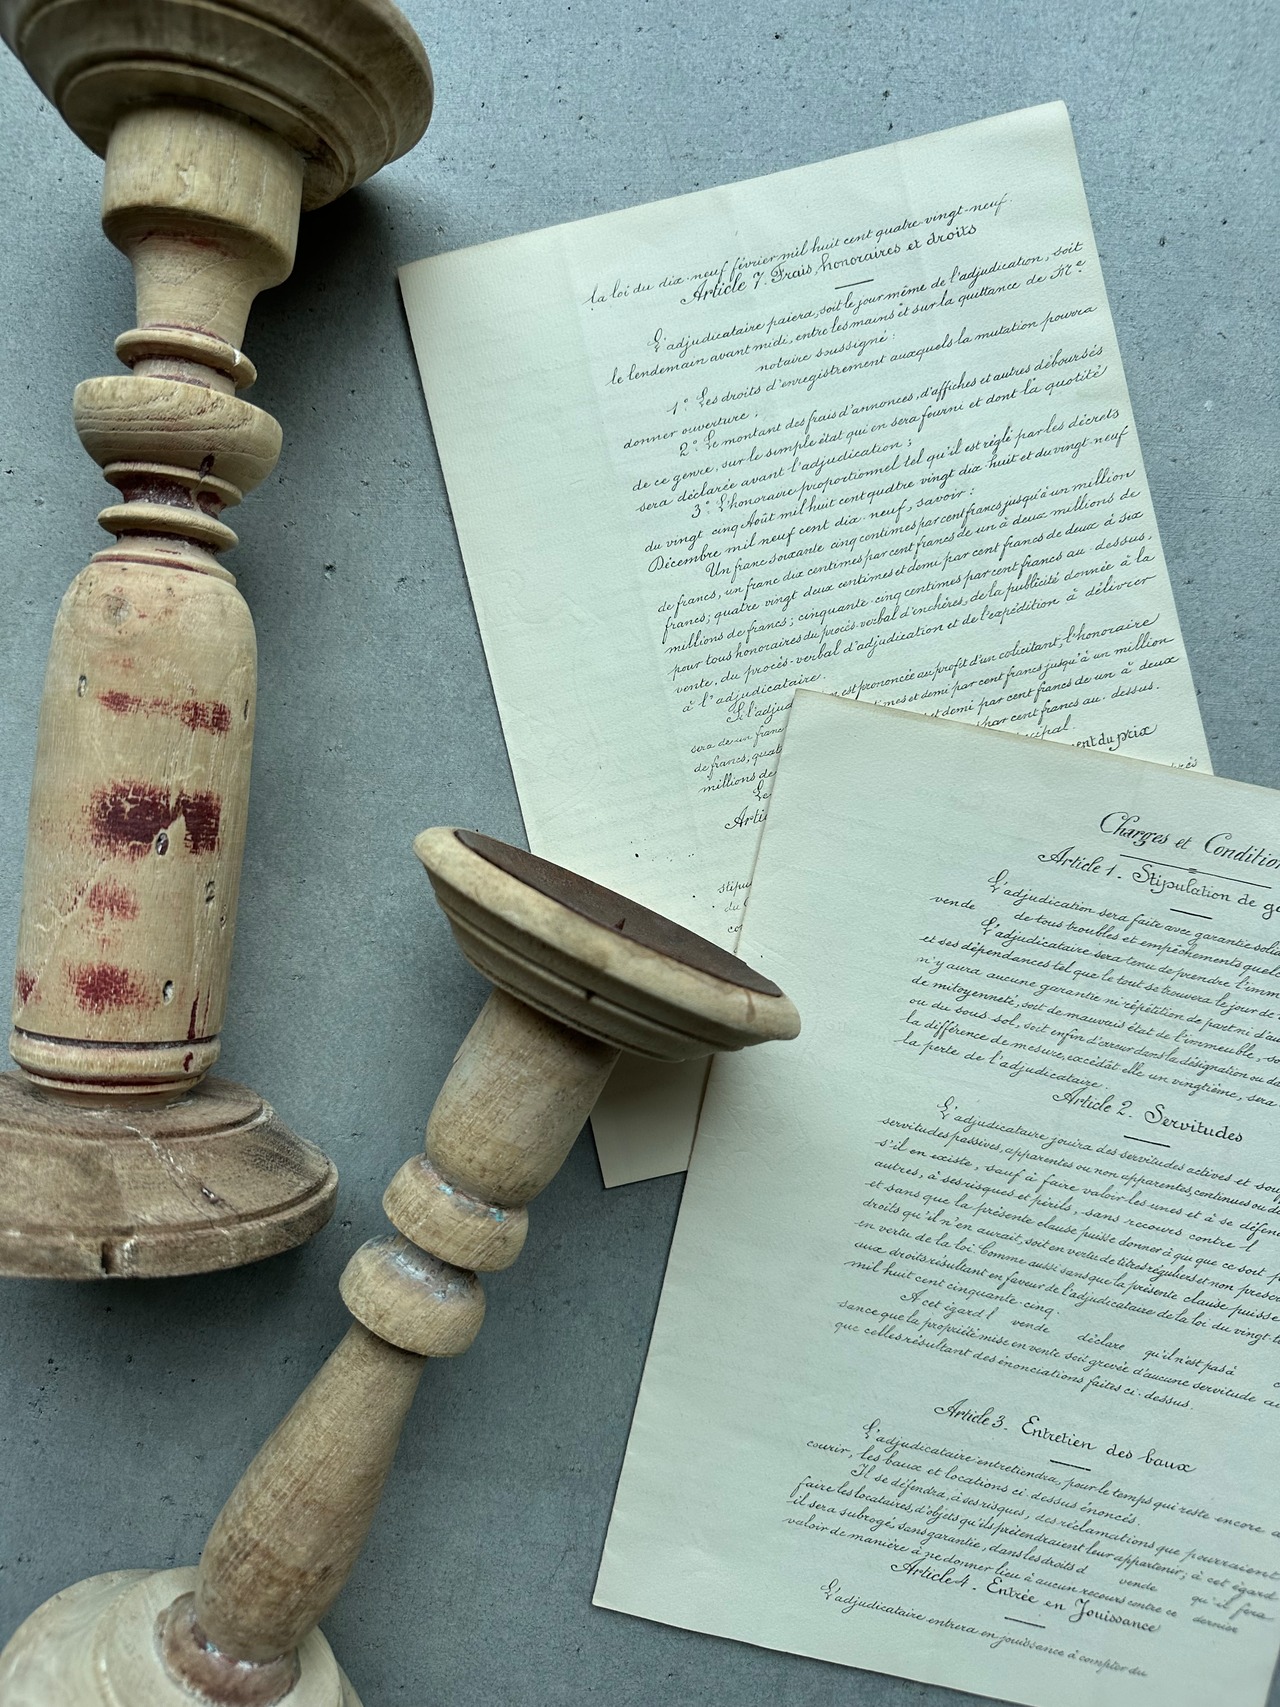 la loi du dix-neuf février mil huit cent quatre-vingt-neuf.
Article 7. Frais, honoraires et droits
L'adjudicataire paiera, soit le jour même de l'adjudication, soit
le lendemain avant midi, entre les mains et sur la quittance de Me
notaire soussigné :
1° Les droits d'enregistrement auxquels la mutation pourra
donner ouverture ;
2° Le montant des frais d'annonces, d'affiches et autres déboursés
de ce genre, sur le simple état qui en sera fourni et dont la quotité
sera déclarée avant l'adjudication ;
3° L'honoraire proportionnel tel qu'il est réglé par les décrets
du vingt cinq Août mil huit cent quatre vingt dix-huit et du vingt-neuf
Décembre mil neuf cent dix-neuf, savoir :
Un franc soixante cinq centimes par cent francs jusqu'à un million
de francs, un franc dix centimes par cent francs de un à deux millions de
francs; quatre vingt deux centimes et demi par cent francs de deux à six
millions de francs; cinquante-cinq centimes par cent francs au-dessus,
pour tous honoraires du procès-verbal d'enchères, de la publicité donnée à la
vente, du procès-verbal d'adjudication et de l'expédition à délivrer
à l'adjudicataire.
Si l'adjud est prononcée au profit d'un colicitant, l'honoraire
sera de un franc times et demi par cent francs jusqu'à un million
de francs, quat et demi par cent francs de un à deux
millions de par cent francs au-dessus.
Le cipal.
Arti ent du prix
stipu
du
co
Charges et Condition
Article 1. Stipulation de ga
L'adjudication sera faite avec garantie soli
vende de tous troubles et empêchements quelc
L'adjudicataire sera tenu de prendre l'imm
et ses dépendances tel que le tout se trouvera le jour de
n'y aura aucune garantie ni répétition de part ni d'au
de mitoyenneté, soit de mauvais état de l'immeuble, so
ou du sous-sol, soit enfin d'erreur dans la désignation ou da
la différence de mesure, excédât elle un vingtième, sera
la perte de l'adjudicataire.
Article 2. Servitudes
L'adjudicataire jouira des servitudes actives et souf
servitudes passives, apparentes ou non apparentes, continues ou di
s'il en existe, sauf à faire valoir les unes et à se défen
autres, à ses risques et périls, sans recours contre l
et sans que la présente clause puisse donner à qui que ce soit p
droits qu'il n'en aurait, soit en vertu de titres réguliers et non prescr
en vertu de la loi. Comme aussi sans que la présente clause puisse
aux droits résultant en faveur de l'adjudicataire de la loi du vingt-t
mil huit cent cinquante-cinq.
A cet égard l vende déclare qu'il n'est pas à c
sance que la propriété mise en vente soit grevée d'aucune servitude au
que celles résultant des énonciations faites ci-dessus.
Article 3. Entretien des baux
L'adjudicataire entretiendra, pour le temps qui reste encore à
courir, les baux et locations ci-dessus énoncés.
Il se défendra, à ses risques, des réclamations que pourraient
faire les locataires, d'objets qu'ils prétendraient leur appartenir; à cet égard
il sera subrogé, sans garantie, dans les droits d vende qu'il fera
valoir de manière à ne donner lieu à aucun recours contre ce dernier
Article 4. Entrée en Jouissance
L'adjudicataire entrera en jouissance à compter du